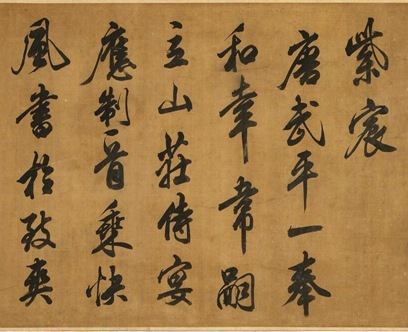 紫宸
唐武平一奉
和幸韋嗣
立山莊侍宴
應制一首乘快
風書於致爽